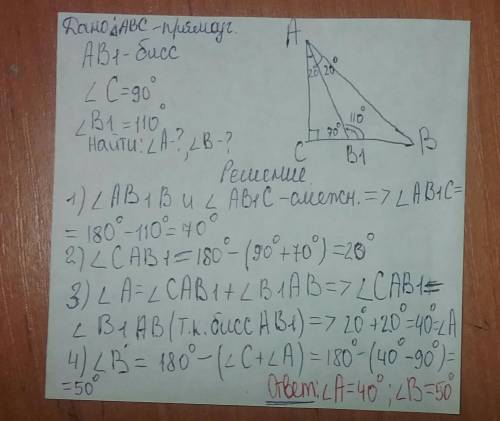 Дано: △ABC - прямоуг.
AB1 - бисс
∠C=90°
∠B1=110°
Найти: ∠A-?, ∠B-?
A
20° 20°
70° 110°
C B1 B
Решение
1) ∠AB1B и ∠AB1C - смежн. => ∠AB1C=
= 180°-110°=70°
2) ∠CAB1=180°-(90°+70°)=20°
3) ∠A=∠CAB1+∠B1AB=>∠CAB1=
∠B1AB (т.к. бисс AB1) => 20°+20°=40°=∠A
4) ∠B = 180°-(∠C+∠A)=180°-(40°-90°)=
=50°
Ответ: ∠A=40°; ∠B=50°